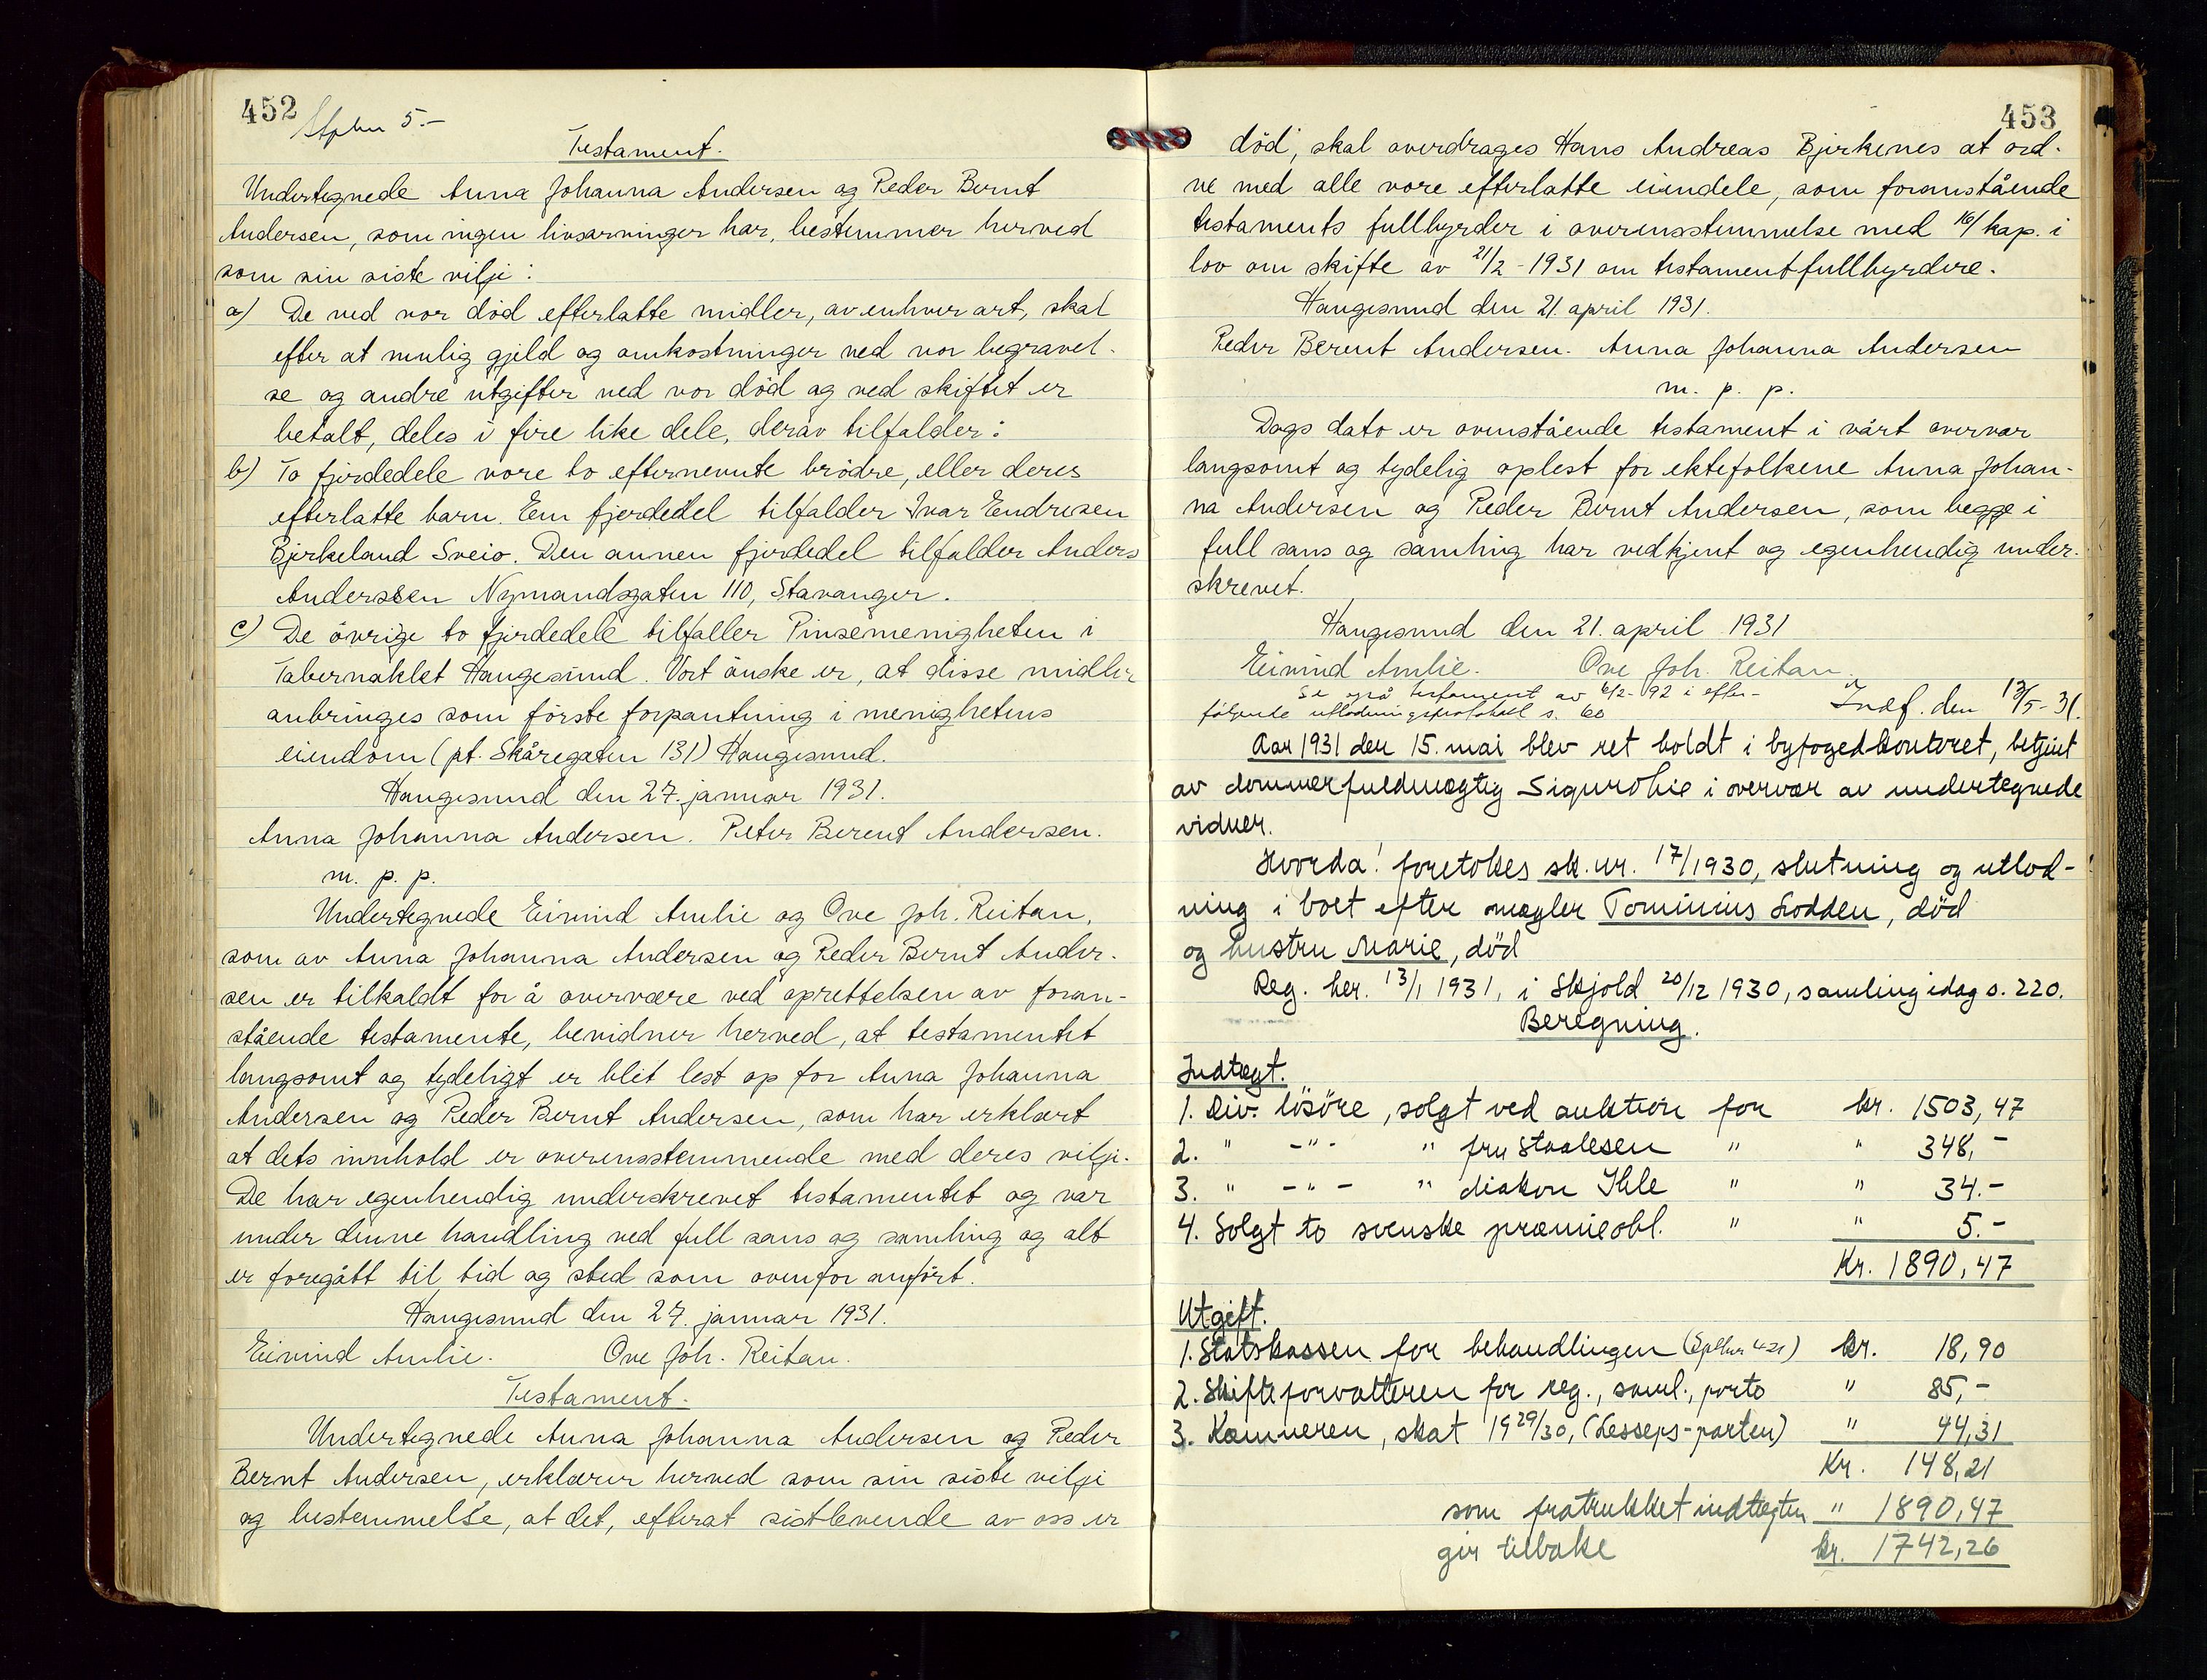 452
5.-
Testament.
Undertegnede Anna Johanna Andersen og Peder Bernt
Andersen, som ingen livsarvinger har, bestemmer herved
som sin siste vilje:
a) De ved vor död efterlatte midler, av enhver art, skal
efter at mulig gjeld og omkostninger ved vor begravel-
se og andre utgifter ved vor död og ved skiftet er
betalt, deles i fire like dele, derav tilfalder:
b) To fjerdedele vore to efternevnte brödre, eller deres
efterlatte barn. Een fjerdedel tilfalder Ivar Endresen
Bjerkeland Sveio. Den annen fjerdedel tilfalder Anders
Anderssen Nymandsgaten 110, Stavanger.
c) De övrige to fjerdedele tilfaller Pinsemenigheten i
Tabernaklet Haugesund. Vort önske er, at disse midler
anbringes som förste forpantning i menighetens
eiendom (pt. Skåregaten 131) Haugesund.
Haugesund den 27. januar 1931.
Anna Johanna Andersen. Peter Berent Andersen.
m. p. p.
Undertegnede Eivind Amlie og Ove Joh. Reitan,
som av Anna Johanna Andersen og Peder Bernt Ander-
sen er tilkaldt for å overvære ved oprettelsen av foran-
stående testamente, bevidner herved, at testamentet
langsomt og tydeligt er blit lest op for Anna Johanna
Andersen og Peder Bernt Andersen, som har erklært
at dets innhold er overensstemmende med deres vilje.
De har egenhendig underskrevet testamentet og var
under denne handling ved full sans og samling og alt
er foregått til tid og sted som ovenfor anfört.
Haugesund den 27. januar 1931.
Eivind Amlie. Ove Joh. Reitan.
Testament.
Undertegnede Anna Johanna Andersen og Peder
Bernt Andersen, erklærer herved som sin siste vilje
og bestemmelse, at det, efterat sistlevende av oss er
453
död, skal overdrages Hans Andreas Bjerkenes at ord-
ne med alle vore efterlatte eiendele, som foranstående
testaments fullbyrder i overensstemmelse med 16/ kap. i
lov om skifte av 21/2 - 1931 om testamentfullbyrdere.
Haugesund den 21. april 1931.
Peder Berent Andersen. Anna Johanna Andersen
m. p. p.
Dags dato er ovenstående testament i vårt overvær
langsomt og tydelig oplest for ektefolkene Anna Johan-
na Andersen og Peder Bernt Andersen, som begge i
full sans og samling har vedkjent og egenhendig under-
skrevet.
Haugesund den 21. april 1931
Eivind Amlie. Ove Joh. Reitan.
Se også testament av 6/2- 92 i efter-
følgende utlodningsprotokol s. 60
Indf. den 13/5-31.
Aar 1931 den 15. mai blev ret holdt i byfogedkontoret, betjent
av dommerfuldmægtig Sigurd Lie i overvær av undertegnede
vidner.
Hvorda! foretokes sk. nr. 17/1930, slutning og utlod-
ning i boet efter mægler Tominius Lodden, död
og hustru Marie, död
Reg. her. 13/1 1931, i Skjold 20/12 1930, samling idag s. 220.
Beregning.
Indtægt.
1. Div. lösöre, solgt ved auktion for kr. 1503,47
2. " -"- " fru Staalesen " " 348,-
3. " -"- " diakon Ihle " " 34.-
4. Solgt to svenske præmieobl. " " 5.-
Kr. 1890,47
Utgift.
1. Statskassen for behandlingen kr. 18,90
2. Skifteforvalteren for reg., saml., porto " 85,-
3. Kæmneren, skat 1929/30, (Lesseps-parten) " 44,31
Kr. 148,21
som fratrukket indtægten " 1890,47
gir tilbake kr. 1742,26